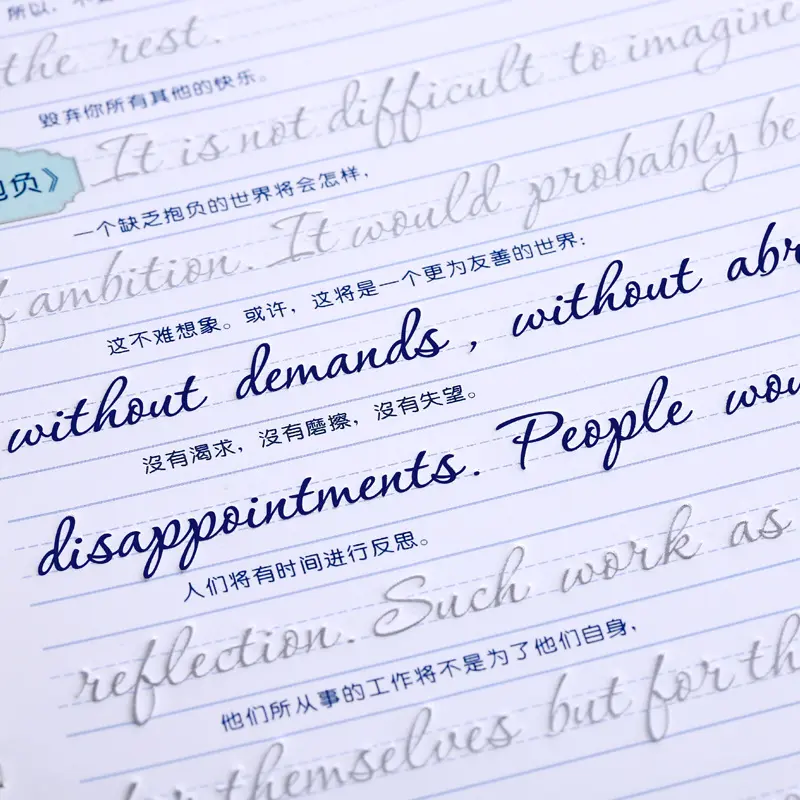 所以，不
the rest.
毁弃你所有其他的快乐。
It is not difficult to imagine
抱负》
一个缺乏抱负的世界将会怎样，
ambition. It would probably be
这不难想象。或许，这将是一个更为友善的世界：
without demands, without abr
沒有渴求，沒有磨擦，沒有失望。
disappointments. People wou
人们将有时间进行反思。
reflection. Such work as
他们所从事的工作将不是为了他们自身，
themselves but for th